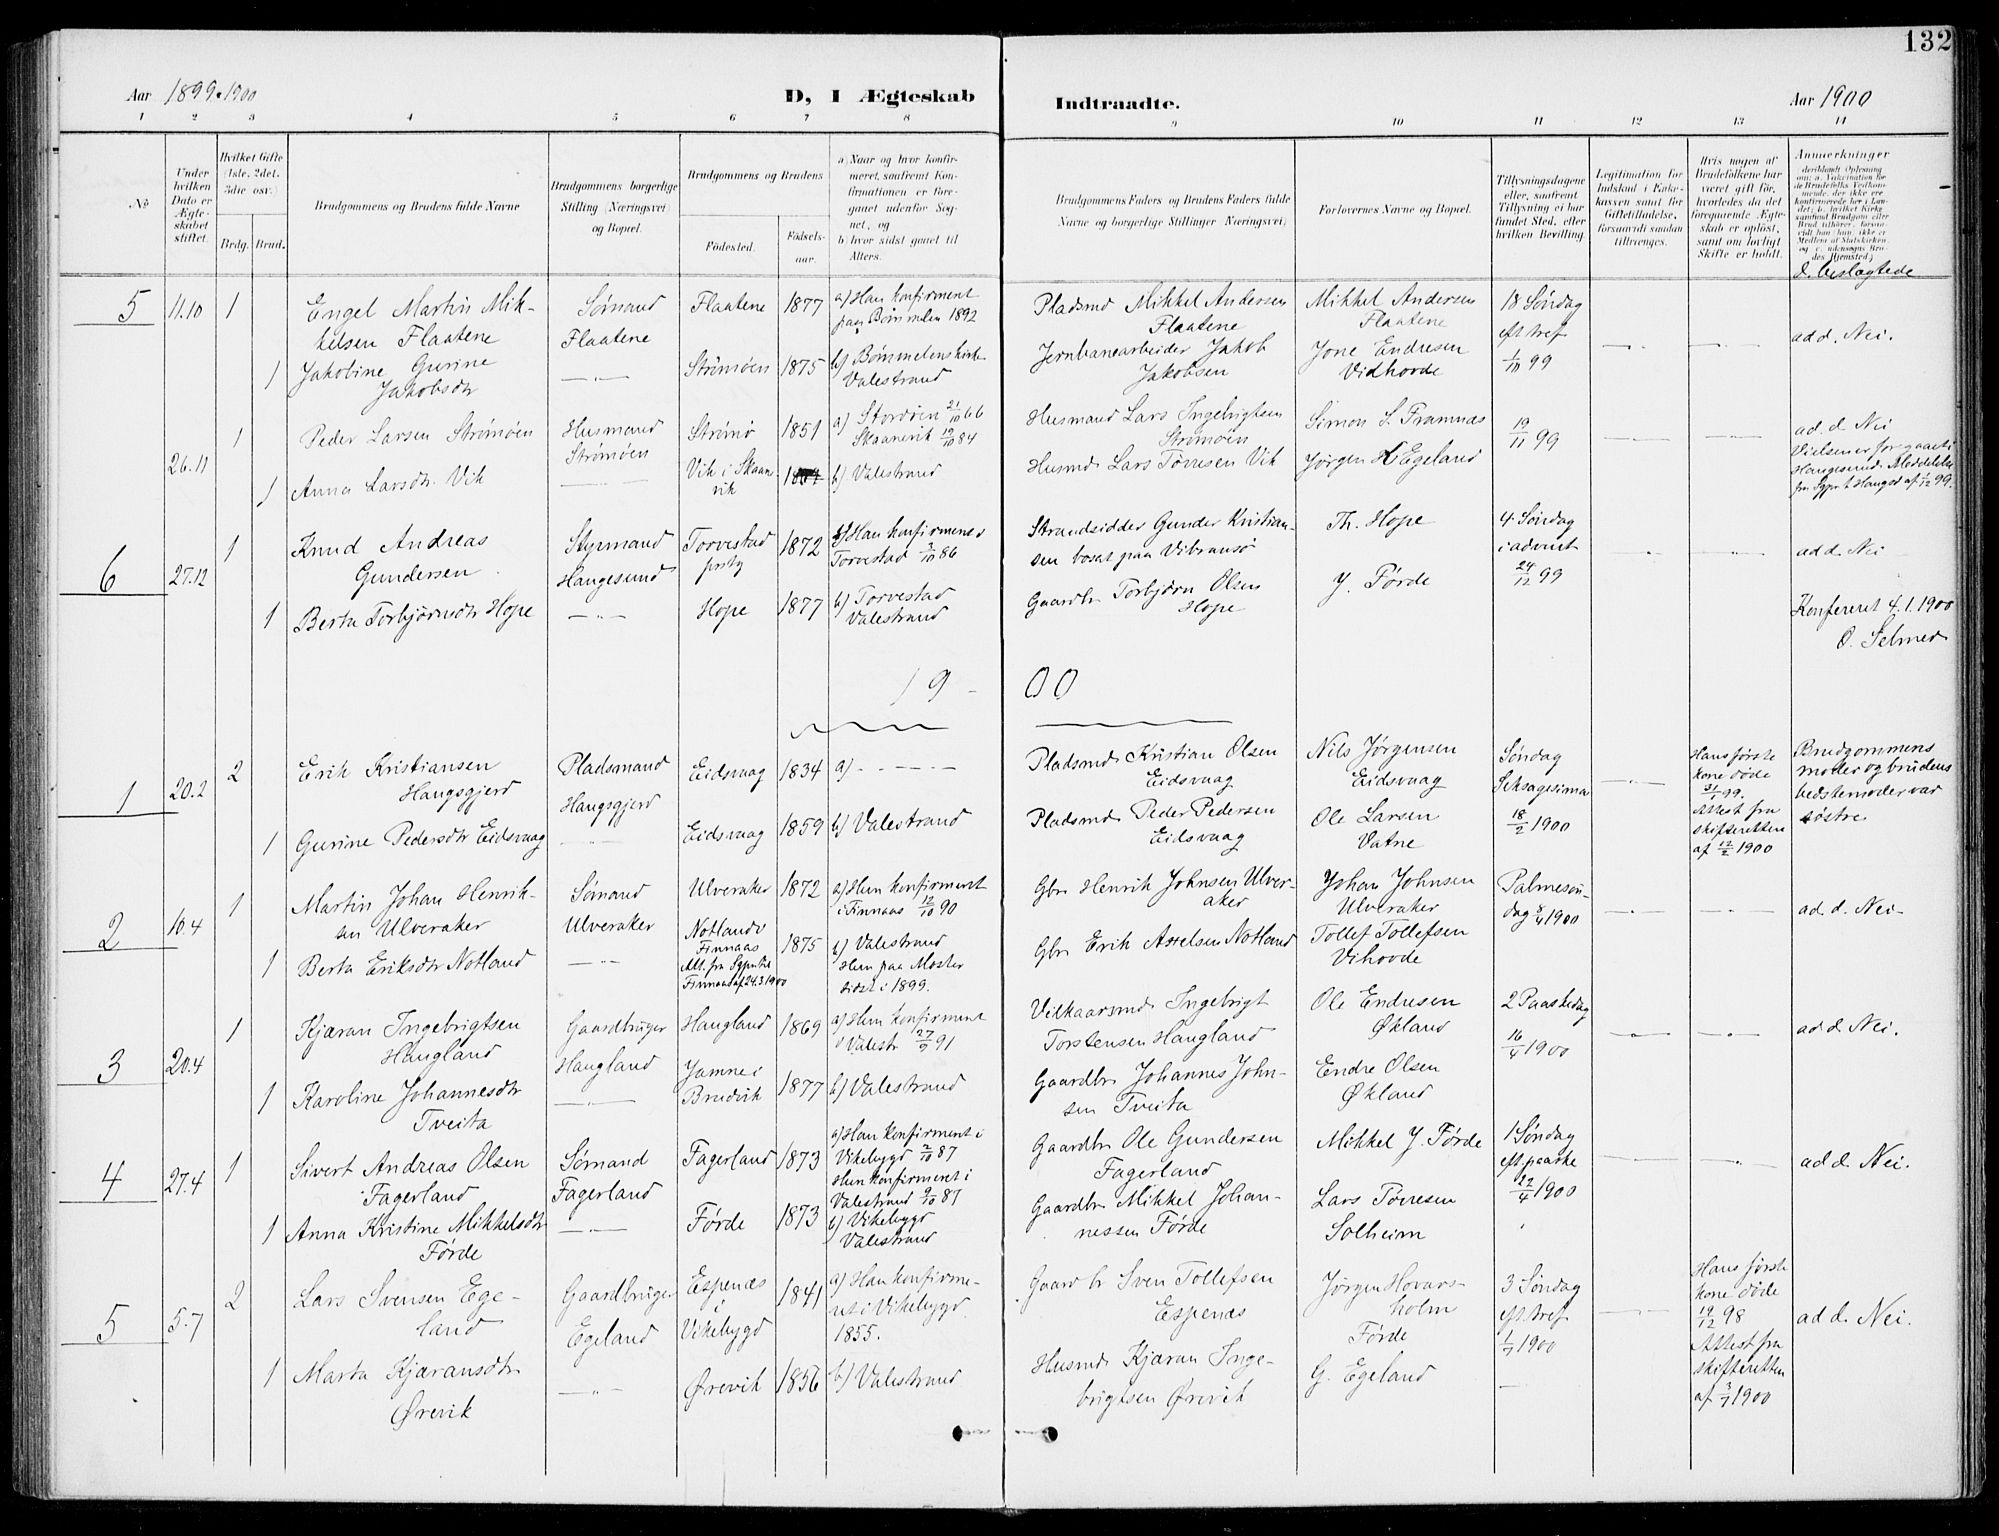 132
Aar 1899-1900
D, I Ægteskab
Indtraadte.
Aar 1900
1 2 3 4 5 6 7 8 9 10 11 12 13 14
No
Under hvilken Dato er Ægteskabet stiftet.
Hvilket Gifte (1ste, 2det, 3die osv.)
Brdg. Brud.
Brudgommens og Brudens fulde Navne
Brudgommens borgerlige Stilling (Næringsvei) og Bopæl.
Brudgommens og Brudens
Födested.
Födselsaar.
a) Naar og hvor konfirmeret, saafremt Konfirmationen er foregaaet udenfor Sognet, og
b) hvor sidst gaaet til Alters.
Brudgommens Faders og Brudens Faders fulde Navne og borgerlige Stillinger (Næringsvei)
Forlovernes Navne og Bopæl.
Tillysningsdagene eller, saafremt Tillysning ei har fundet Sted, efter hvilken Bevilling.
Legitimation for Indskud i Enkekassen samt for Giftetilladelse, forsaavidt saadan tiltrænges.
Hvis nogen af Brudefolkene har været gift för, hvorledes da det foregaaende Ægteskab er oplöst, samt om lovligt Skifte er holdt.
Anmerkninger
d. beslægtede
5
11.10
1
Engel Martin Mikkelsen Flaatene
Sømand Flaatene
Flaatene
1877
a) Han konfirmeret paa Bømmelen 1892
Pladsmd Mikkel Andersen Flaatene
Mikkel Andersen Flaatene
18 Søndag eft. tref 1/10 99
ad d. Nei.
1
Jakobine Gurine Jakobsdtr
— " —
Strömöen
1875
b) Bømmelens kirke Valestrand
Jernbanearbeider Jakob Jakobsen
Jone Endresen Vidhovde
26.11
1
Peder Larsen Strømöen
Husmand Strømöen
Strømø
1851
a) Stordöen 21/10 66 Skaanevik 19/10 84
Husmand Lars Ingebrigtsen Strømöen
Simon S. Framnæs
19/11 99
ad d. Nei Vielsen er foregaaet i Haugesund. Meddelelse fra Sgpr. t. Haugsd af 1/12 99.
1
Anna Larsdtr Vik
Vik i Skaanevik
b) Valestrand
Husmd Lars Tørresen Vik
Jørgen H Egeland
6
27.12
1
Knud Andreas Gundersen
Styrmand Haugesund
Torvestad prstg
1872
a) Han konfirmeret Torvestad 3/10 86
Strandsidder Gunder Kristiansen bosat paa Vibransö
Th. Hope
4. Søndag i advent 24/12 99
ad d. Nei
1
Berta Torbjörnsdtr Hope
— " —
Hope
1877
b) Torvestad Valestrand
Gaardbr Torbjörn Olsen Hope
J. Förde
Konfereret 4.1.1900
O. Selmer
19 - 00
1
20.2
2
Erik Kristiansen Haugsgjerd
Pladsmand Haugsgjerd
Eidsvaag
1834
a) - - - - -
Pladsmd Kristian Olsen Eidsvaag
Nils Jørgensen Eidsvaag
Søndag Seksagesima 18/2 1900
Hans første kone døde 31/1 99. Attest fra skifteretten af 12/2 1900
Brudgommens moder og brudens bedstemoder var søstre
1
Gurine Pedersdtr Eidsvaag
— " —
Eidsvaag
1859
b) Valestrand
Pladsmd Peder Pedersen Eidsvaag
Ole Larsen Vatne
2
10.4
1
Martin Johan Henriksen Ulveraker
Sømand Ulveraker
Ulveraker
1872
a) Hun konfirmeret i Finnaas 12/10 90
Gbr Henrik Johnsen Ulveraker
Johan Johnsen Ulveraker
Palmesöndag 8/4 1900
ad d. Nei-
1
Berta Eriksdtr Notland
— " —
Notland Finnaas Att. fra Sgpr til Finnaas af 24.3.1900
1875
b) Valestrand Hun paa Moster sidst i 1899.
Gbr Erik Asselsen Notland
Tollef Tollefsen Vihovde
3
20.4
1
Kjæran Ingebrigtsen Haugland
Gaardbruger Haugland
Haugland
1869
a) Hun konfirmeret i Valestr 27/9 91
Vilkaarsmd Ingebrigt Torstensen Haugland
Ole Endresen Økland
2 Paaskedag 16/4 1900
ad d. Nei.
1
Karoline Johannesdtr Tveita
— " —
Jamne i Bruvik
1877
b) Valestrand
Gaardbr Johannes Johnsen Tveita
Endre Olsen Økland
4
27.4
1
Sivert Andreas Olsen Fagerland
Sømand Fagerland
Fagerland
1873
a) Han konfirmeret i Vikebygd 2/10 87 Hun konfirmeret i Valestrand 9/10 87
Gaardbr Ole Gundersen Fagerland
Mikkel J. Førde
1 Søndag eft. paaske 22/4 1900
ad d. Nei.
1
Anna Kristine Mikkelsdtr Førde
— " —
Førde
1873
b) Vikebygd Valestrand
Gaardbr Mikkel Johannessen Førde
Lars Tørresen Solheim
5
5.7
2
Lars Svensen Egeland
Gaardbruger Egeland
Espenæs i Vikebygd
1841
a) Han konfirmeret i Vikebygd 1855.
Gaardbr Sven Tollefsen Espenæs
Jørgen Hovarsholm Førde
3 Søndag eft. tref 1/7 1900
Hans første kone døde 19/12 98 Attest fra skifteretten af 3/7 1900
ad d. Nei.
1
Marta Kjæransdtr Ørevik
— " —
Ørevik
1856
b) Valestrand
Husmd Kjæran Ingebrigtsen Ørevik
G. Egeland